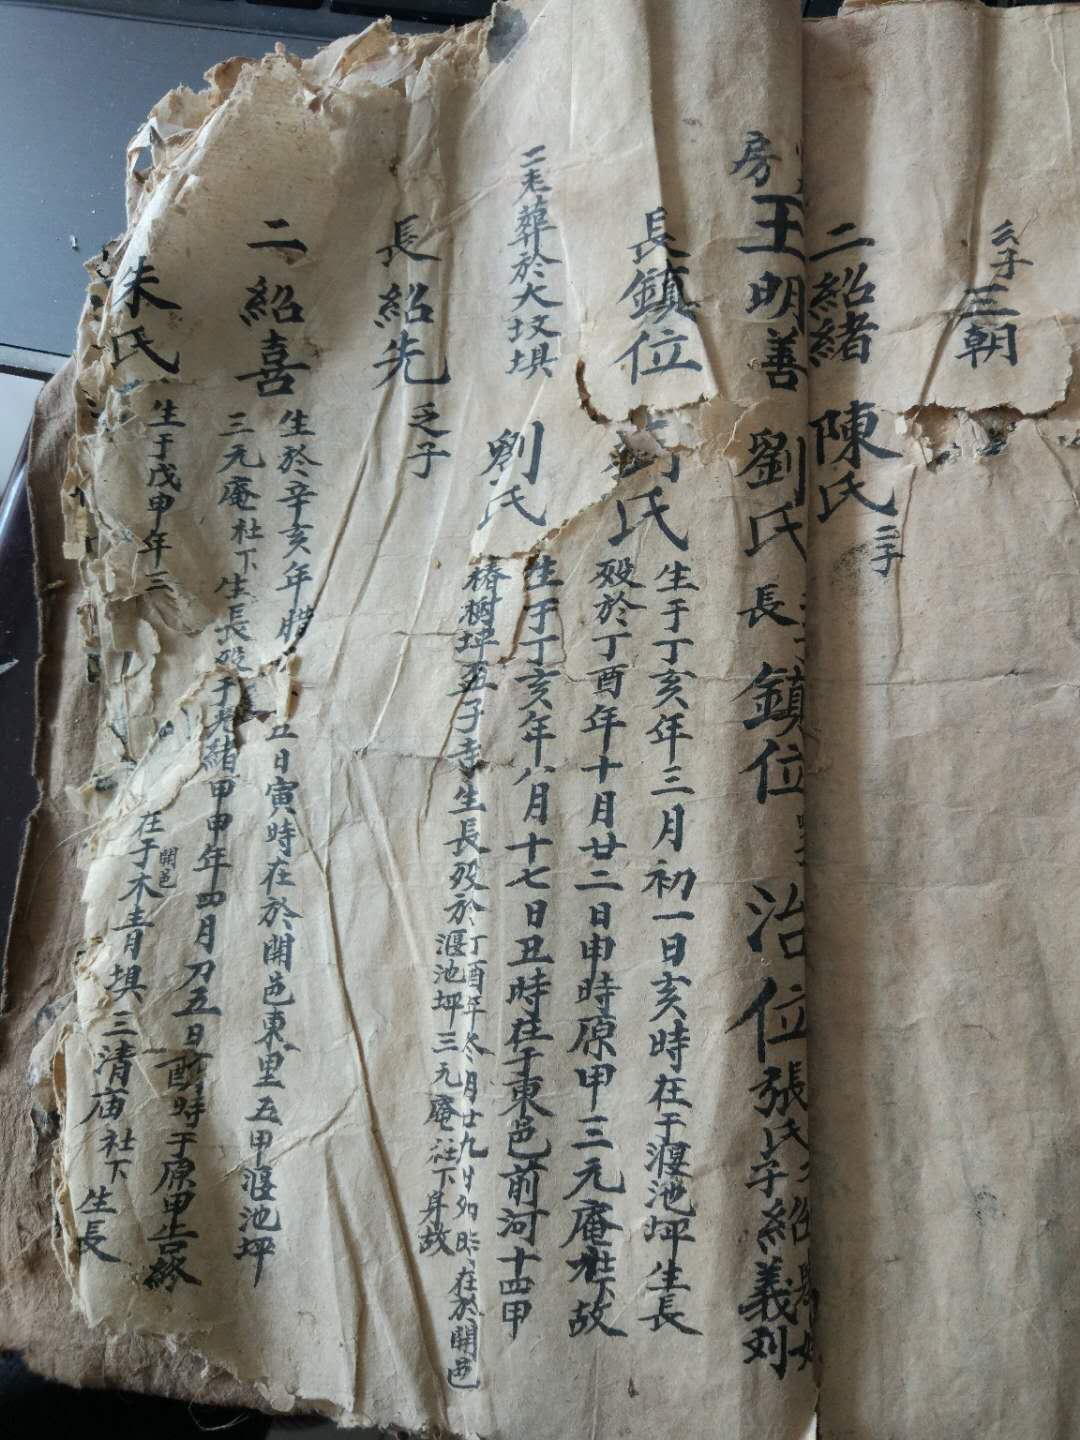 公子三朝
二紹緒 陳氏 二子
房 王明善 劉氏 長 鎮位 治位 張氏子紹義刘
長鎮位 氏 生于丁亥年三月初一日亥時在于潌池坪生長
殁於丁酉年十月廿二日申時原甲三元庵社下故
二老葬於大坟垻 劉氏 生于丁亥年八月十七日丑時在于東邑前河十四甲
椿樹坪孟子寺生長殁於丁酉年冬月廿九日卯時在於開邑
潌池坪三元庵社下身故
長紹先 乏子
二紹喜 生於辛亥年腊 五日寅時在於開邑東里五甲潌池坪
三元庵社下生長殁于光緒甲申年四月初五日酉時于原甲告終
朱氏 生于戊申年三 在于開邑木青垻三清庙社下生長